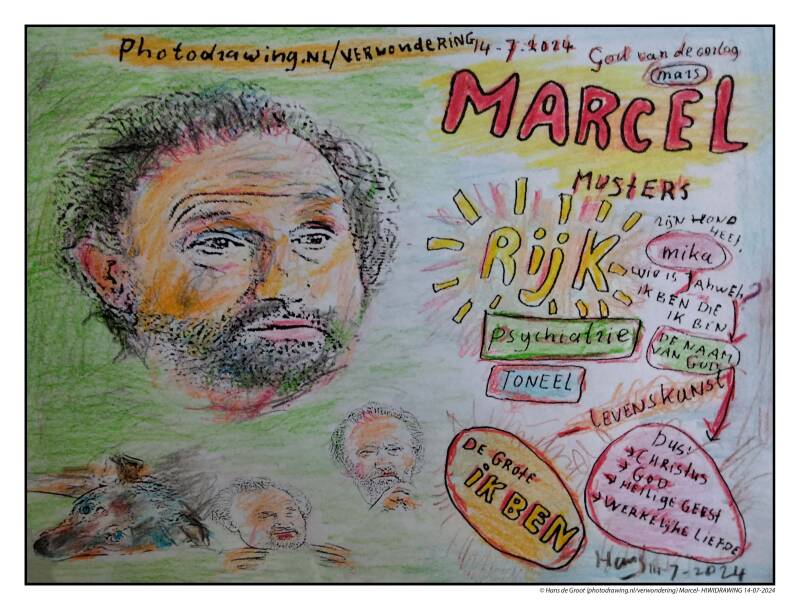 Photodrawing.NL/VERWONDERING 14-7-2024
God van de oorlog
mars
MARCEL
MUSTERS
ZIJN HOND
HEET
mika
RijK
WIE IS JAHWEH?
IK BEN DIE
IK BEN
psychiatrie
DE NAAM
VAN GOD
TONEEL
LEVENSKUNST
DE GROTE
iK BEN
DUS:
→ CHRISTUS
→ GOD
→ HEILIGE GEEST
→ WERKELIJKE LIEFDE
Hans 14-7-2024
© Hans de Groot (photodrawing.nl/verwondering) Marcel- HIWIDRAWING 14-07-2024